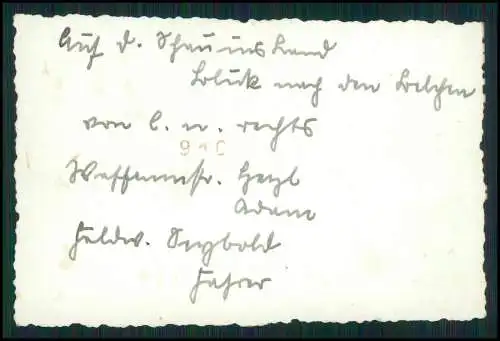 Auf d. Schauinsland
Blick nach den Belchen
von l. n. rechts
Waffenmstr. Hetzl
Adam
Feldw. Seybold
Fahrer